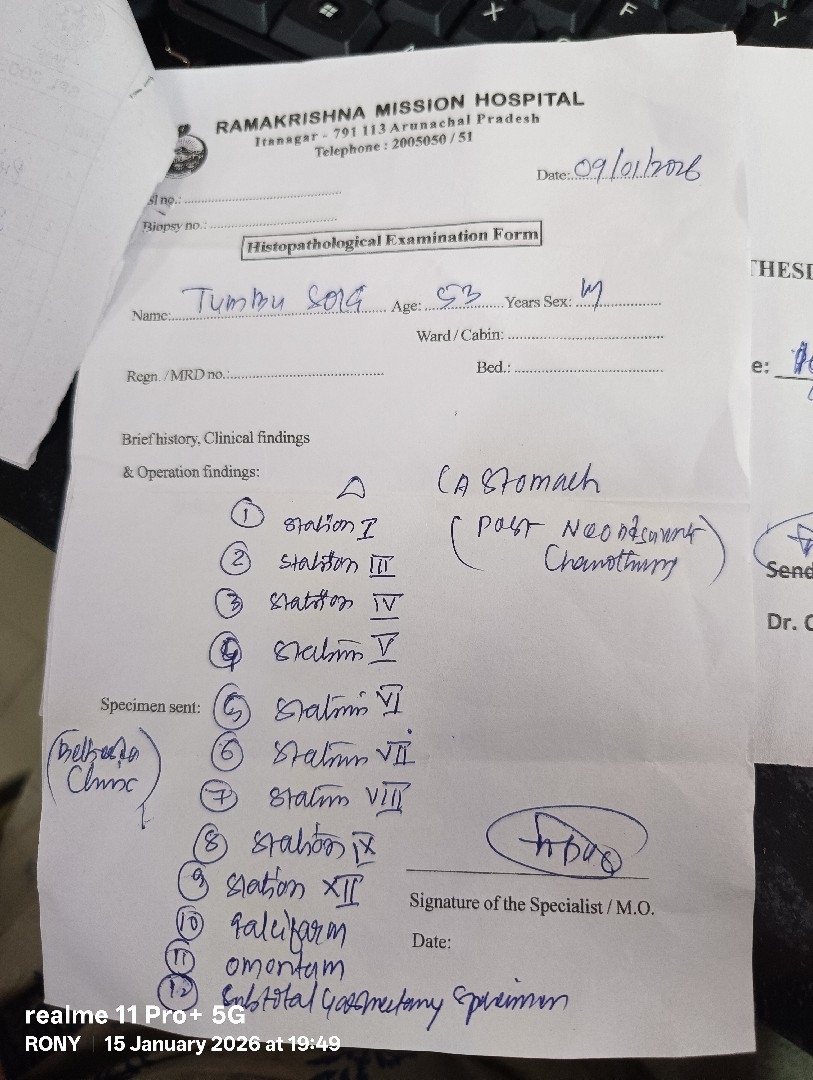 RAMAKRISHNA MISSION HOSPITAL
Itanagar - 791 113 Arunachal Pradesh
Telephone : 2005050 / 51
Date: 09/01/2026
Sl no.:
Biopsy no.:
Histopathological Examination Form
Name: Tumbu Sora Age: 53 Years Sex: M
Ward / Cabin:
Regn. / MRD no.:
Bed.:
Brief history, Clinical findings
& Operation findings:
△ CA Stomach
(Post Neoadjuvant
① Station I
② Station III
③ Station IV
④ Station V
Specimen sent: ⑤ Station VI
⑥ Station VII
Clinic)
⑦ Station VIII
⑧ Station IX
⑨ Station XII
⑩ Falcifarm
⑪ omentum
⑫ Subtotal Gastrectomy Specimen
Signature of the Specialist / M.O.
Date:
THESI
e:
Send
Dr. C
realme 11 Pro+ 5G
RONY | 15 January 2026 at 19:49